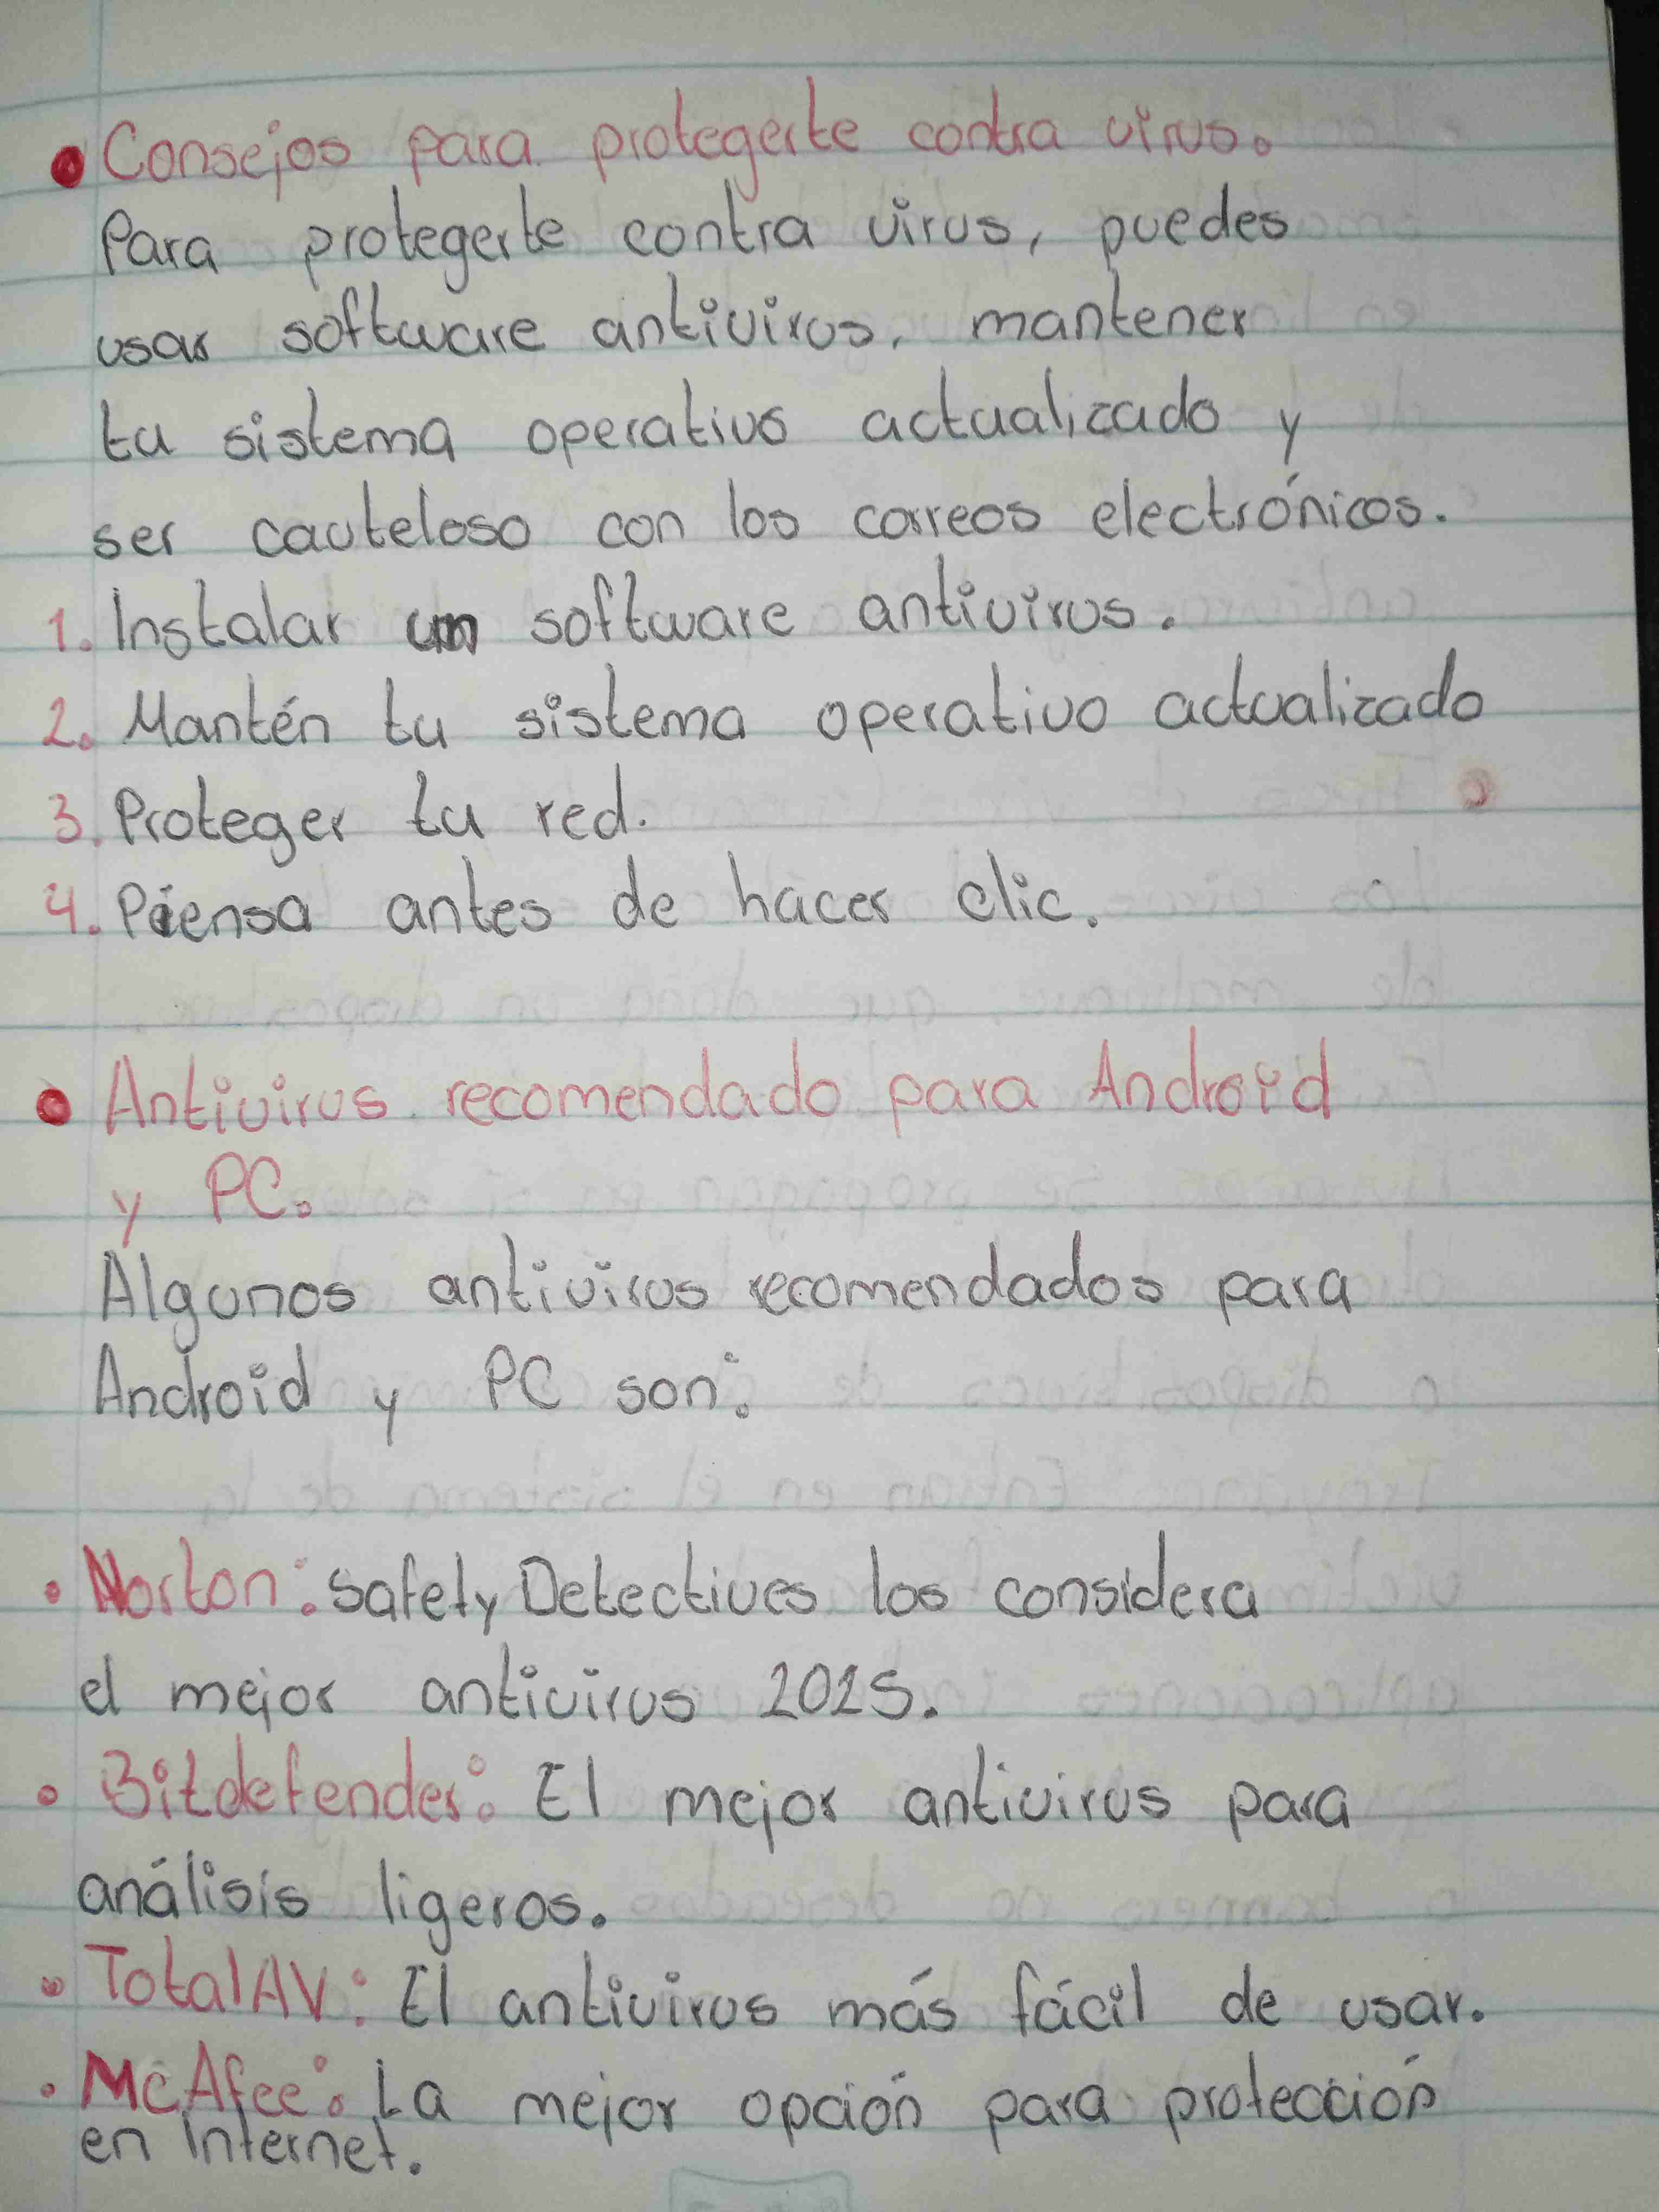 • Consejos para protegerte contra virus.
Para protegerte contra virus, puedes
usar software antivirus, mantener
tu sistema operativo actualizado y
ser cauteloso con los correos electrónicos.
1. Instalar un software antivirus.
2. Mantén tu sistema operativo actualizado
3. Proteger tu red.
4. Piensa antes de hacer clic.
• Antivirus recomendado para Android
y PC.
Algunos antivirus recomendados para
Android y PC son:
• Norton: Safety Detectives los considera
el mejor antivirus 2025.
• Bitdefender: El mejor antivirus para
análisis ligeros.
• TotalAV: El antivirus más fácil de usar.
• McAfee: La mejor opción para protección
en Internet.